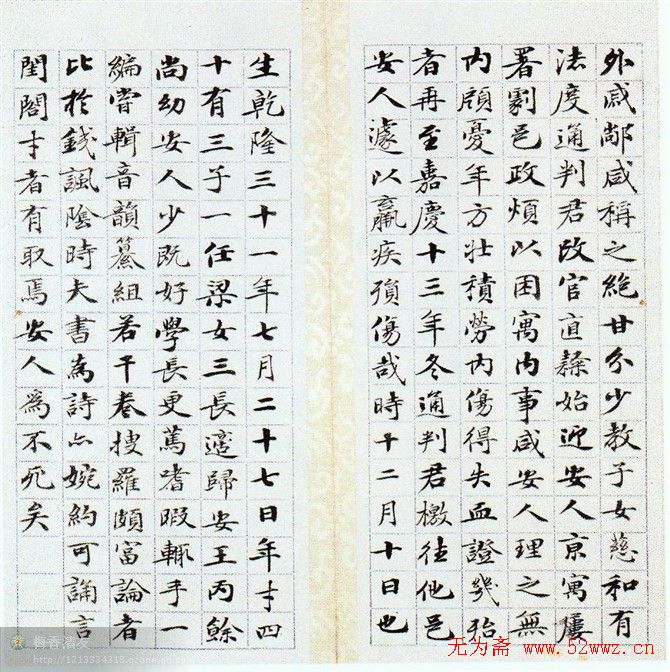 外戚鄰咸稱之絶甘分少教子女慈和有
法度通判君改官直隸始迎安人京寓屢
署劇邑政煩以困寓内事咸安人理之無
内顧憂年方壯積勞内傷得失血證幾殆
者再至嘉慶十三年冬通判君檄往他邑
安人遽以羸疾殞傷哉時十二月十日也
生乾隆三十一年七月二十七日年才四
十有三子一任梁女三長適歸安王丙餘
尚幼安人少既好學長更篤嗜暇輒手一
編嘗輯音韻纂組若干卷搜羅頗富論者
比於錢諷陰時夫書為詩亦婉約可誦言
閨閤才者有取焉安人為不死矣
梅香清溪
http://1213334318.qzone.qq.com
无为斋 www.52wwz.cn